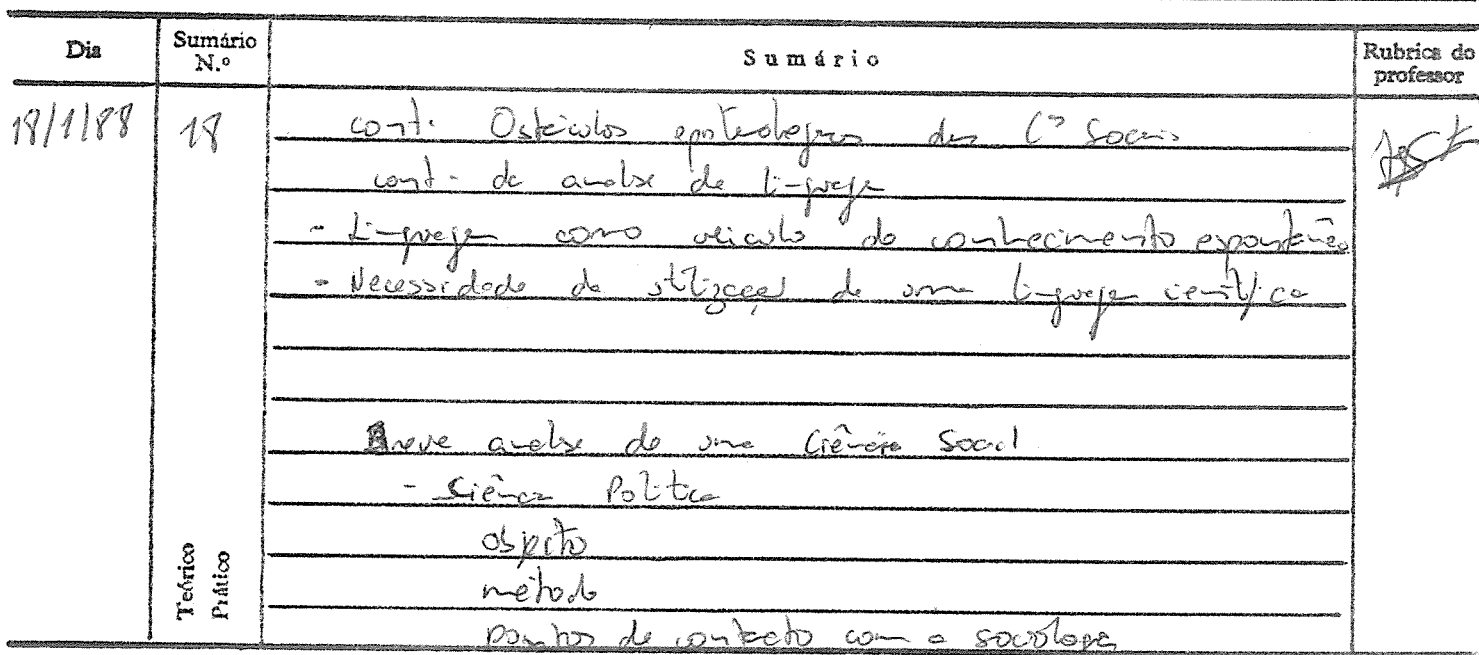 Dia Sumário N.º Sumário Rubrica do professor
18/1/88 18 cont. Obstáculos epistemológicos das C.ª Sociais
cont. da analise da linguagem
- Linguagem como veiculo do conhecimento espontâneo
- Necessidade da utilização de uma linguagem cientifica
Breve analise de uma Ciência Social
- Ciência Politica
objecto
método
pontos de contacto com a sociologia
Teórico
Prático